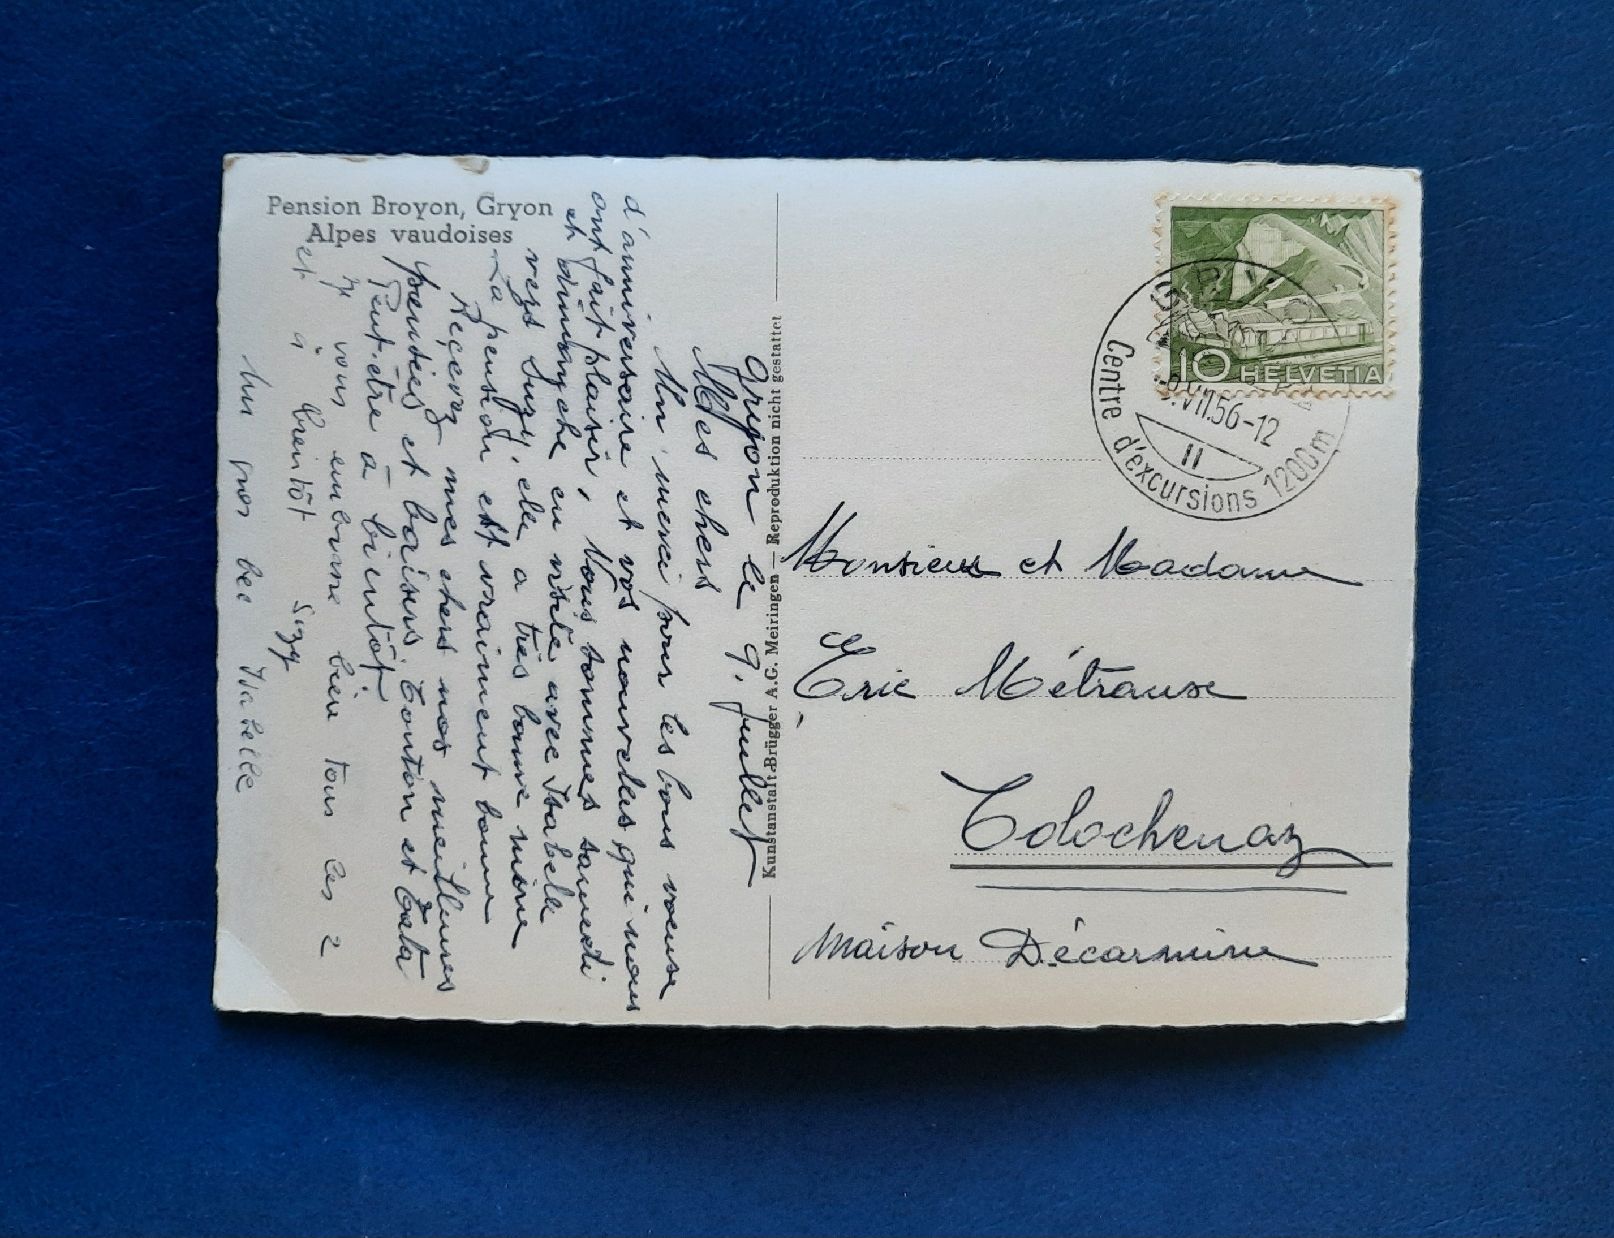 Pension Broyon, Gryon
Alpes vaudoises
Gryon le 9. juillet
Mes chers
Un merci pour les bons voeux
d'anniversaire et vos nouvelles qui nous
ont fait plaisir, Nous sommes samedi
et dimanche en visite avec Isabelle
vers Suzy, elle a très bonne mine
La pension est vraiment bonne
Reçevez mes chers nos meilleures
pensées et baisers. Tonton et Tata
Peut-être à bientôt
je vous embrasse bien tous les 2
et à bientôt Suzy
Un gros bec Isabelle
Kunstanstalt Brügger A.G. Meiringen — Reproduktion nicht gestattet
10 HELVETIA
GRYON
9.VII.56-12
II
Centre d'excursions 1200m
Monsieur et Madame
Eric Métraux
Tolochenaz
Maison Décarmine